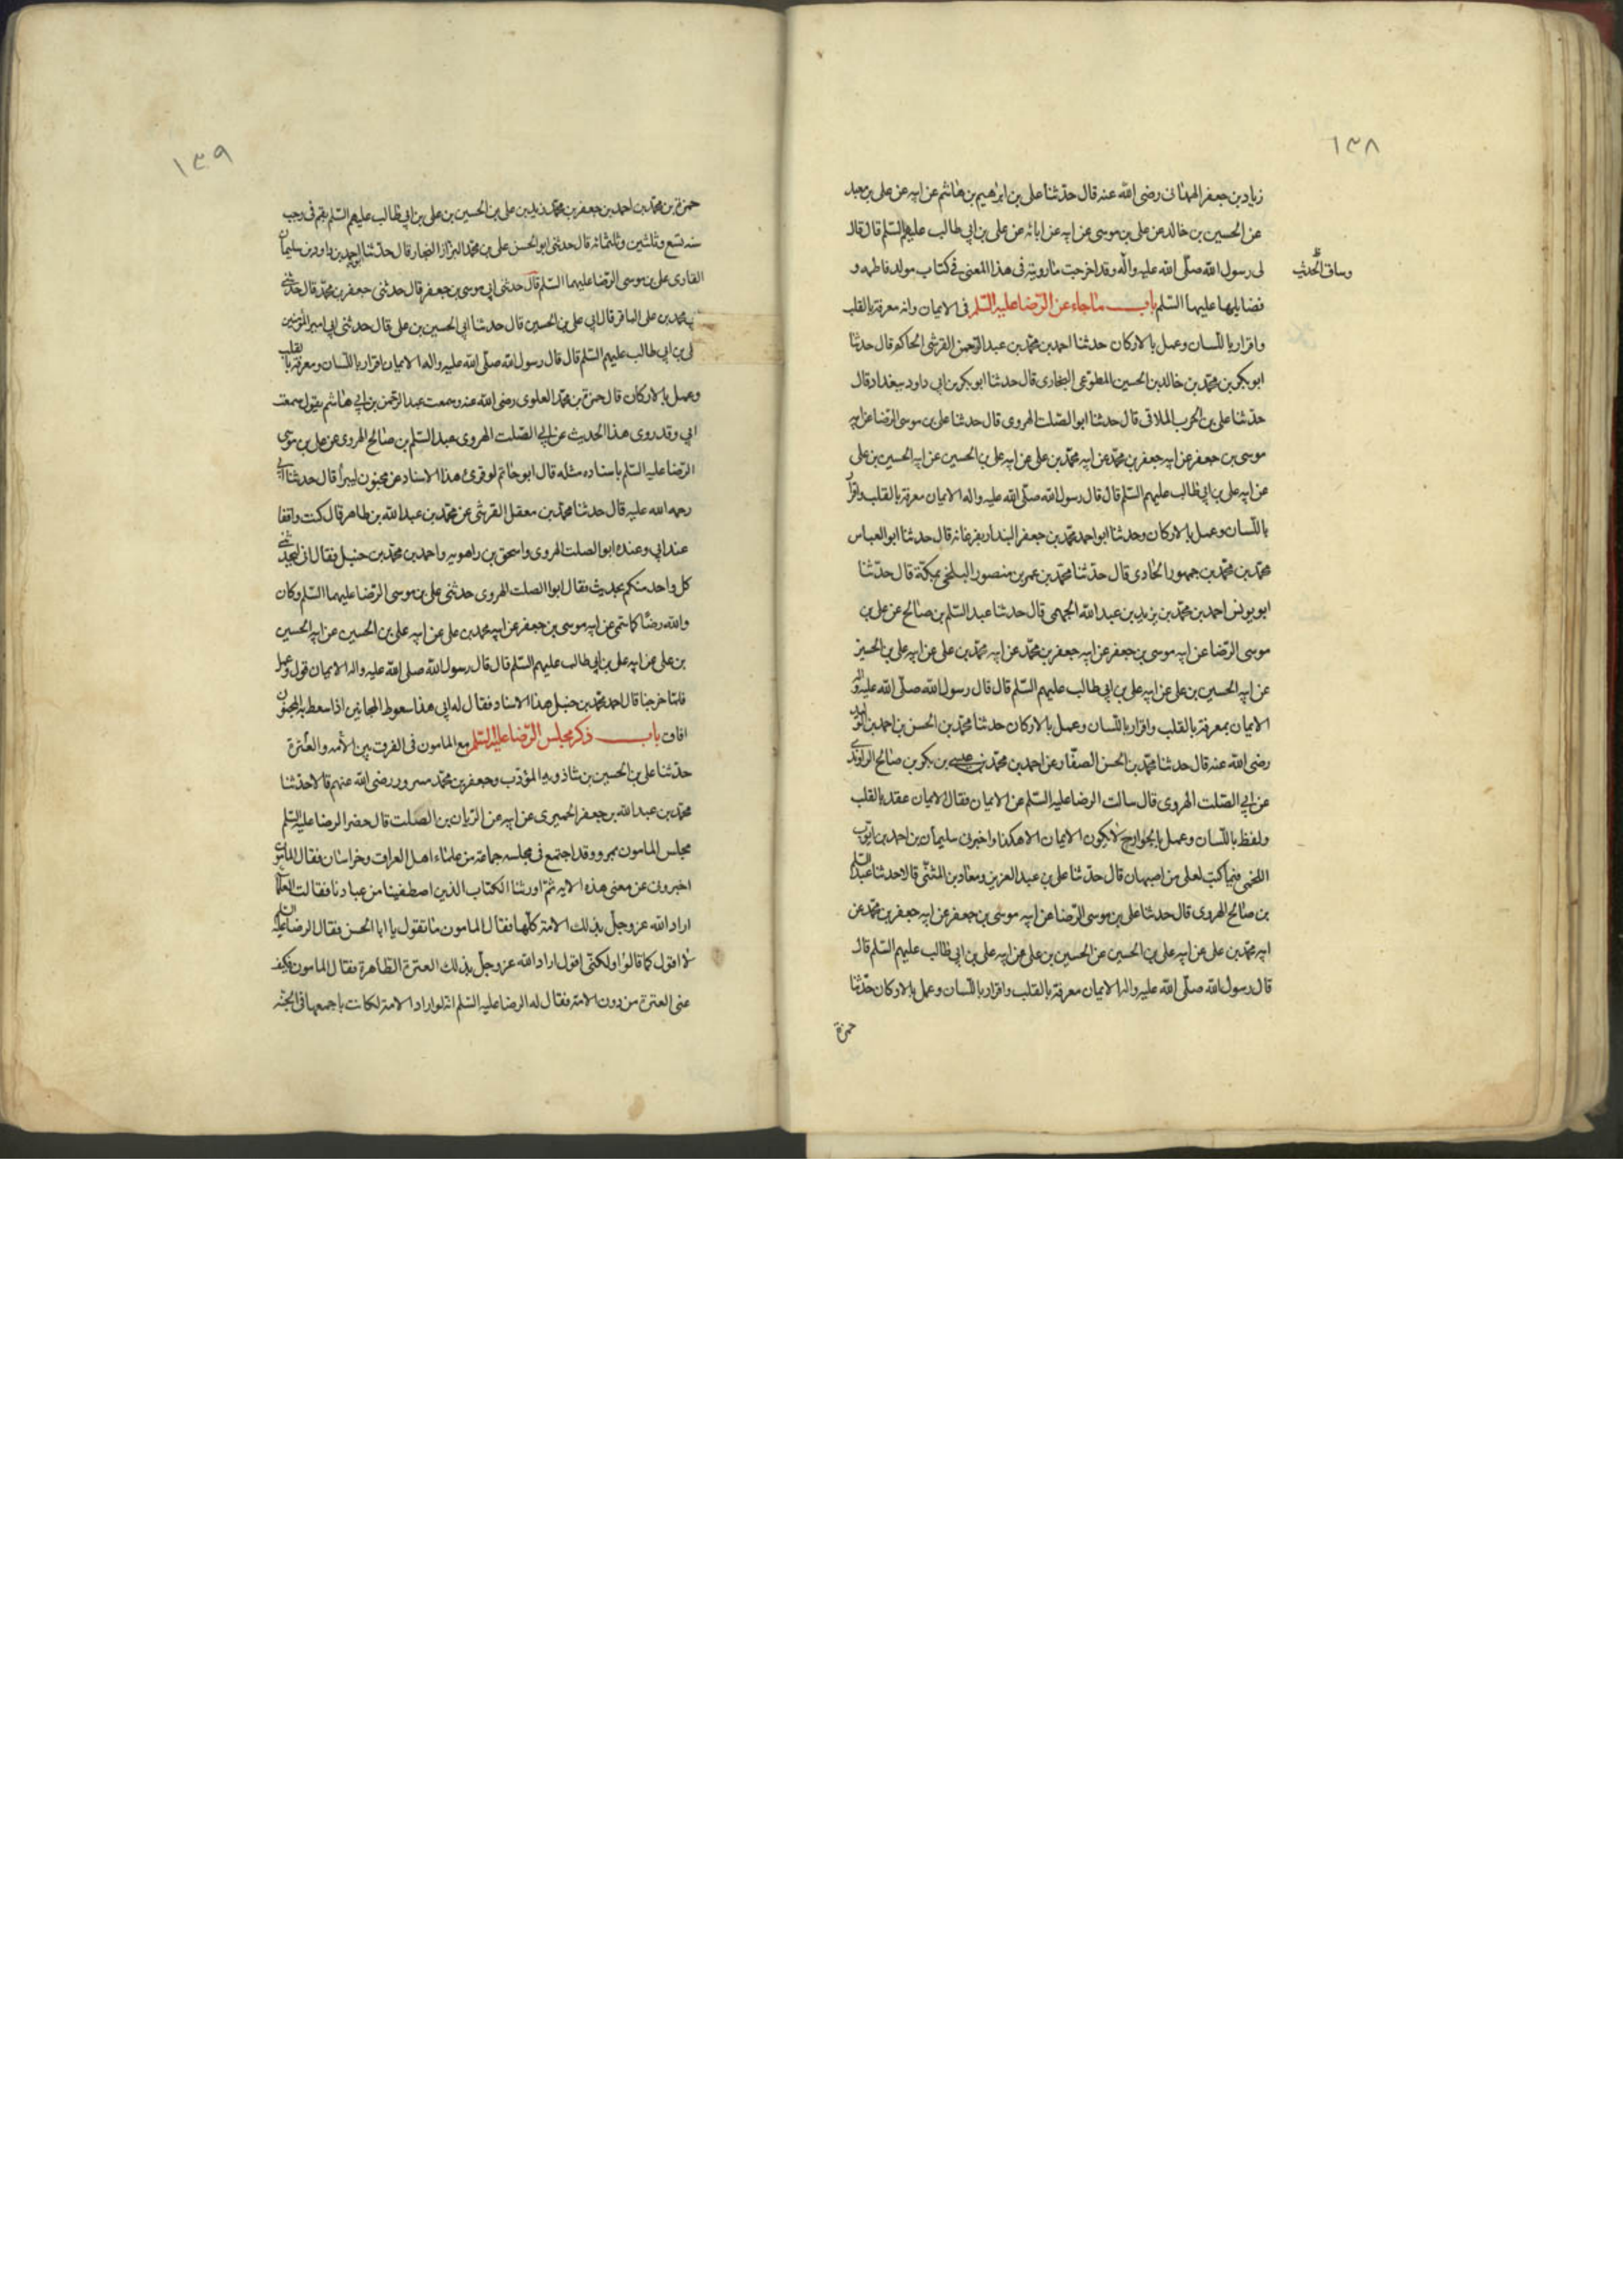 ١٣٨
زياد بن جعفر الهمدانى رضى الله عنه قال حدثنا على بن ابرهيم بن هاشم عن ابيه عن على بن معبد
عن الحسين بن خالد عن على بن موسى عن ابيه عن ابائه عن على بن ابي طالب عليهم السلم قال قال
لى رسول الله صلى الله عليه واله وقد اخرجت ما رويته فى هذا المعنى فى كتاب مولد فاطمه و
وساق الحديث
فضايلها عليها السلم باب ما جاء عن الرضا عليه السلم فى الايمان وانه معرفة بالقلب
واقرار باللسان وعمل بالاركان حدثنا احمد بن محمد بن عبد الرحمن القرشى الحاكم قال حدثنا
ابو بكر بن محمد بن خالد بن الحسين المطوعى البخارى قال حدثنا ابو بكر بن ابى داود ببغداد قال
حدثنا على بن الحرب الملاقى قال حدثنا ابو الصلت الهروى قال حدثنا على بن موسى الرضا عن ابيه
موسى بن جعفر عن ابيه جعفر بن محمد عن ابيه محمد بن على عن ابيه على بن الحسين عن ابيه الحسين بن على
عن ابيه على بن ابي طالب عليهم السلم قال قال رسول الله صلى الله عليه واله الايمان معرفة بالقلب واقرار
باللسان وعمل بالاركان وحدثنا ابو احمد محمد بن جعفر البندار بفرغانة قال حدثنا ابو العباس
محمد بن محمد بن جمهور الحادى قال حدثنا محمد بن عمر بن منصور البلخى بمكة قال حدثنا
ابو يونس احمد بن محمد بن يزيد بن عبد الله الجمهى قال حدثنا عبد السلم بن صالح عن على بن
موسى الرضا عن ابيه موسى بن جعفر عن ابيه جعفر بن محمد عن ابيه محمد بن على عن ابيه على بن الحسين
عن ابيه الحسين بن على عن ابيه على بن ابي طالب عليهم السلم قال قال رسول الله صلى الله عليه واله
الايمان بمعرفة بالقلب واقرار باللسان وعمل بالاركان حدثنا محمد بن الحسن بن احمد بن الوليد
رضى الله عنه قال حدثنا محمد بن الحسن الصفار عن احمد بن محمد بن عيسى بن بكر بن صالح الرازى
عن ابي الصلت الهروى قال سالت الرضا عليه السلم عن الايمان فقال الايمان عقد بالقلب
ولفظ باللسان وعمل بالجوارح لا يكون الايمان الا هكذا واخبرنى سليمان بن احمد بن ايوب
اللخمى فيما كتب لعلى من اصبهان قال حدثنا على بن عبد العزيز ومعاد بن المثنى قالا حدثنا عبد السلم
بن صالح الهروى قال حدثنا على بن موسى الرضا عن ابيه موسى بن جعفر عن ابيه جعفر بن محمد عن
ابيه محمد بن على عن ابيه على بن الحسين عن الحسين بن على عن ابيه على بن ابي طالب عليهم السلم قال
قال رسول الله صلى الله عليه واله الايمان معرفة بالقلب واقرار باللسان وعمل بالاركان حدثنا
حمزة
١٣٩
حمزة بن محمد بن احمد بن جعفر بن محمد بن زيد بن على بن الحسين بن على بن ابي طالب عليهم السلم بقم فى رجب
سنه تسع وثلثين وثلثمائه قال حدثنى ابو الحسن على بن محمد البزاز النجار قال حدثنا ابو احمد بن داود بن سليمان
الغازى على بن موسى الرضا عليهما السلم قال حدثنى ابى موسى بن جعفر قال حدثنى جعفر بن محمد قال حدثنى
محمد بن على الباقر قال ابى على بن الحسين قال حدثنا ابى الحسين بن على قال حدثنى ابى امير المؤمنين
على بن ابي طالب عليهم السلم قال قال رسول الله صلى الله عليه واله الايمان اقرار باللسان ومعرفة بالقلب
وعمل بالاركان قال حمزة بن محمد العلوى رضى الله عنه وسمعت عبد الرحمن بن ابى هاشم يقول سمعت
ابى وقد روى هذا الحديث عن ابي الصلت الهروى عبد السلم بن صالح الهروى عن على بن موسى
الرضا عليه السلم باسناده مثله قال ابو حاتم لو قرئ هذا الاسناد عن مجنون ليبرأ قال حدثنا ابى
رحمه الله عليه قال حدثنا محمد بن معقل القرشى عن محمد بن عبد الله بن طاهر قال كنت واقفا
عند ابى وعنده ابو الصلت الهروى واسحق بن راهويه واحمد بن محمد بن حنبل فقال ابى ليحدثنى
كل واحد منكم بحديث فقال ابو الصلت الهروى حدثنى على بن موسى الرضا عليهما السلم وكان
والله رضًا كما سمى عن ابيه موسى بن جعفر عن ابيه محمد بن على عن ابيه على بن الحسين عن ابيه الحسين
بن على عن ابيه على بن ابي طالب عليهم السلم قال قال رسول الله صلى الله عليه واله الايمان قول وعمل
فلما خرجنا قال احمد بن محمد بن حنبل هذا الاسناد فقال له ابى هذا سعوط المجانين اذا سعط به المجنون
افاق باب ذكر مجلس الرضا عليه السلم مع المامون فى الفرق بين الأمه والعترة
حدثنا على بن الحسين بن شاذويه المؤدب وجعفر بن محمد مسرور رضى الله عنهم قالا حدثنا
محمد بن عبد الله بن جعفر الحميرى عن ابيه عن الريان بن الصلت قال حضر الرضا عليه السلم
مجلس المامون بمرو وقد اجتمع فى مجلسه جماعة من علماء اهل العراق وخراسان فقال المامون
اخبرونى عن معنى هذه الايه ثم اورثنا الكتاب الذين اصطفينا من عبادنا فقالت العلماء
اراد الله عز وجل بذلك الامة كلها فقال المامون ما تقول يا ابا الحسن فقال الرضا عليه السلم
لا اقول كما قالوا ولكنى اقول اراد الله عز وجل بذلك العترة الطاهرة فقال المامون فكيف
عنى العترة من دون الامة فقال له الرضا عليه السلم انه لو اراد الامة لكانت باجمعها فى الجنه